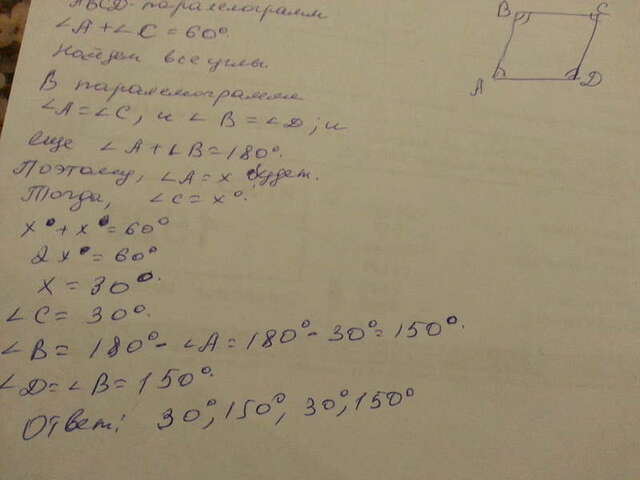 ABCD - параллелограмм
∠A + ∠C = 60°.
Найдем все углы.
В параллелограмме
∠A = ∠C, и ∠B = ∠D; и
еще ∠A + ∠B = 180°.
Поэтому, ∠A = x будет.
Тогда, ∠C = x°.
x° + x° = 60°
2x° = 60°
x = 30°.
∠C = 30°.
∠B = 180° - ∠A = 180° - 30° = 150°.
∠D = ∠B = 150°.
Ответ: 30°, 150°, 30°, 150°
B C
A D